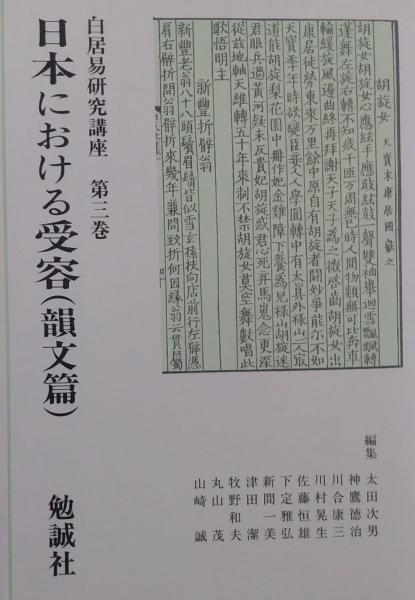 白居易研究講座 第三巻
日本における受容(韻文篇)
勉誠社
胡旋女 天寶末康居國獻之
胡旋女胡旋女心應絃手應鼓絃鼓一聲雙袖舉迴雪飄颻轉
蓬舞左旋右轉不知疲千匝万周無已時人間物類無可比奔車
輪緩旋風遲曲終再拜謝天子天子為之微啓齒胡旋女出
康居徒勞東來万里餘中原自有胡旋者鬪妙爭能尓不如
天寶季年時欲變臣妾人人學圓轉中有太真外祿山二人最
道能胡旋梨花園中冊作妃金雞障下養為兒祿山胡旋迷
君眼兵過黄河疑未反貴妃胡旋惑君心死弃馬嵬念更深
從茲地軸天維轉五十年來制不禁胡旋女莫空舞數唱此
歌悟明主
新豐折臂翁
新豐老翁八十八頭鬢眉鬚皆似雪玄孫扶向店前行左臂憑
肩右臂折問翁臂折來幾年兼問致折何因縁翁云貫屬
編集
太田次男
神鷹徳治
川合康三
川村晃生
佐藤恒雄
下定雅弘
新間一美
津田潔
牧野和夫
丸山茂
山崎誠